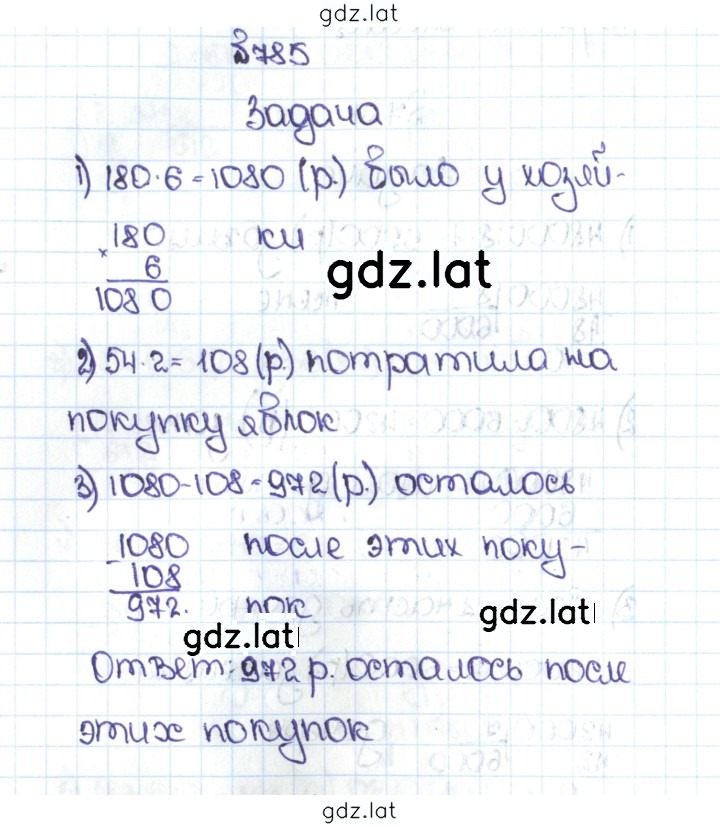 gdz.lat
№785
Задача
1) 180·6=1080 (р.) было у хозяй-
× 180 ки
6
1080
gdz.lat
2) 54·2= 108(р.) потратила на
покупку яблок
3) 1080-108=972(р.) осталось
- 1080 после этих поку-
108
972. пок
gdz.lat
gdz.lat
Ответ: 972 р. осталось после
этих покупок
gdz.lat